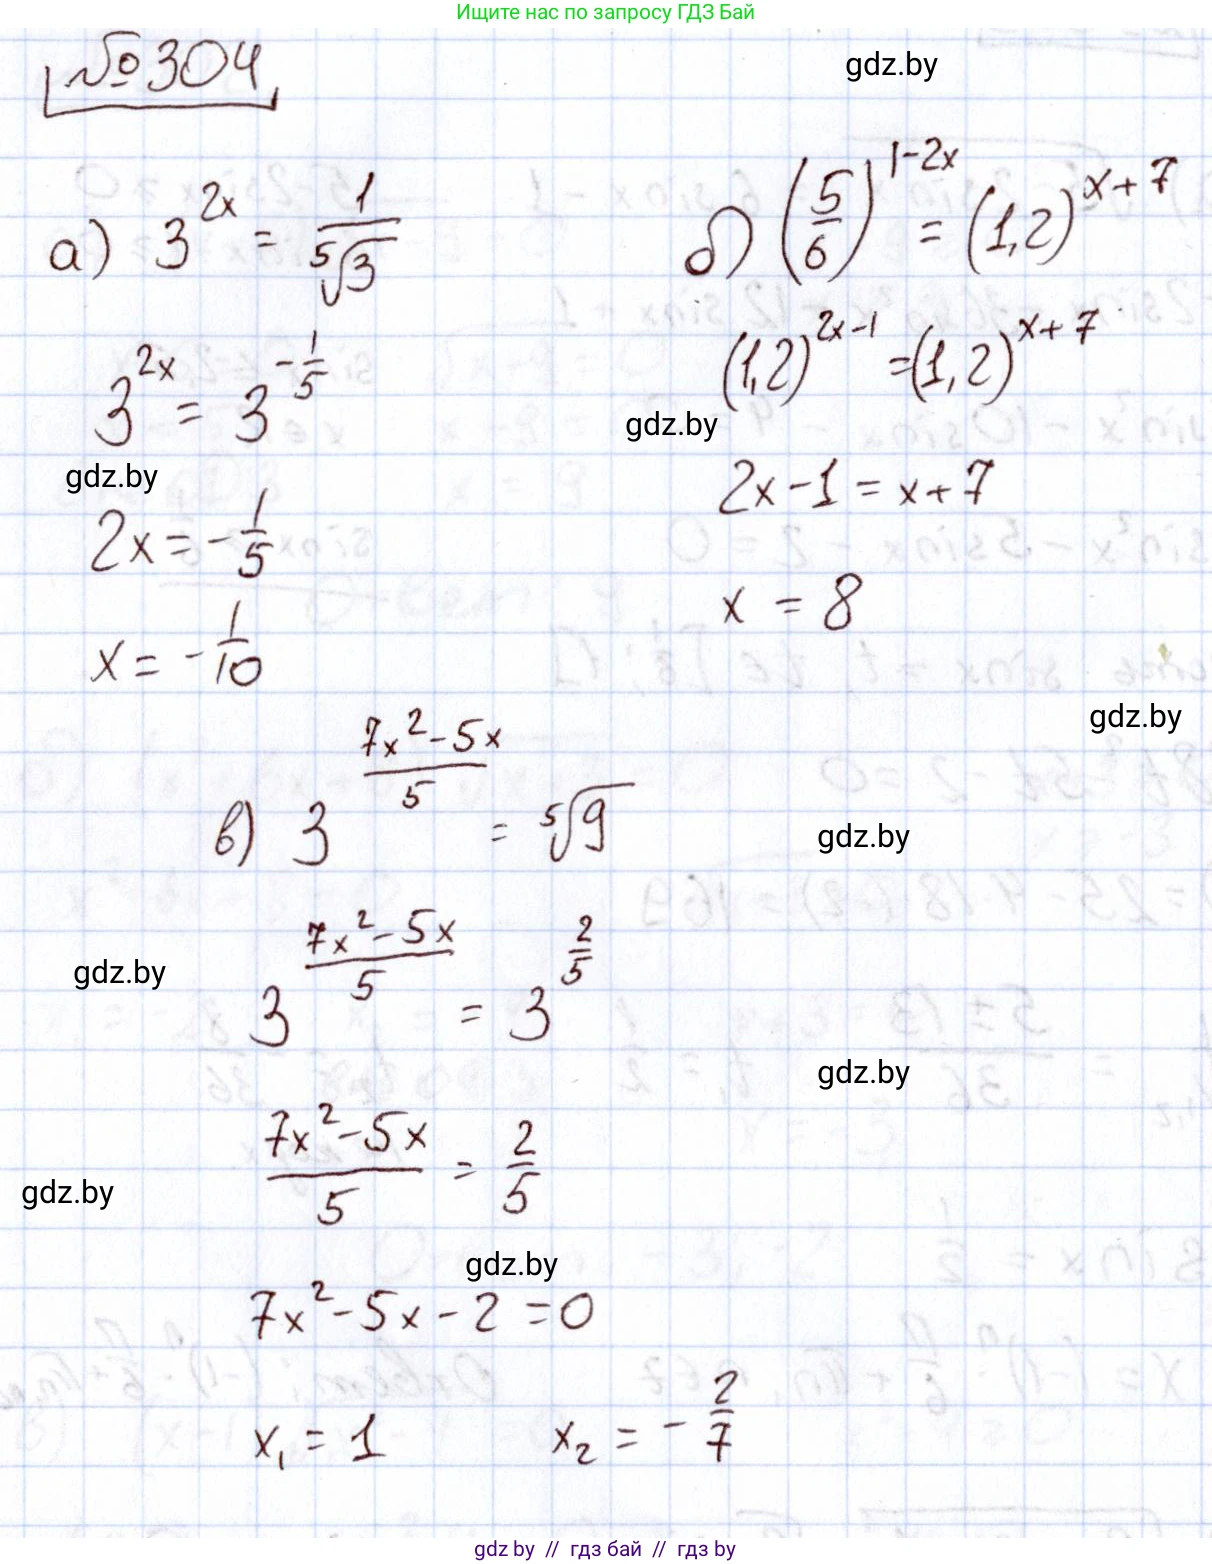 Ищите нас по запросу ГДЗ Бай
№304
gdz.by
а) 3^{2x} = \frac{1}{\sqrt[5]{3}}
3^{2x} = 3^{-\frac{1}{5}}
gdz.by
2x = -\frac{1}{5}
x = -\frac{1}{10}
б) (\frac{5}{6})^{1-2x} = (1,2)^{x+7}
(1,2)^{2x-1} = (1,2)^{x+7}
gdz.by
2x-1 = x+7
x = 8
gdz.by
в) 3^{\frac{7x^2-5x}{5}} = \sqrt[5]{9}
gdz.by
3^{\frac{7x^2-5x}{5}} = 3^{\frac{2}{5}}
gdz.by
gdz.by
\frac{7x^2-5x}{5} = \frac{2}{5}
gdz.by
gdz.by
7x^2-5x-2=0
x_1 = 1 x_2 = -\frac{2}{7}
gdz by // гдз бай // gdz by